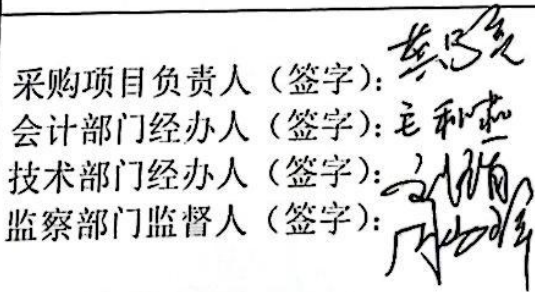 采购项目负责人（签字）：
会计部门经办人（签字）：毛利
技术部门经办人（签字）：
监察部门监督人（签字）：